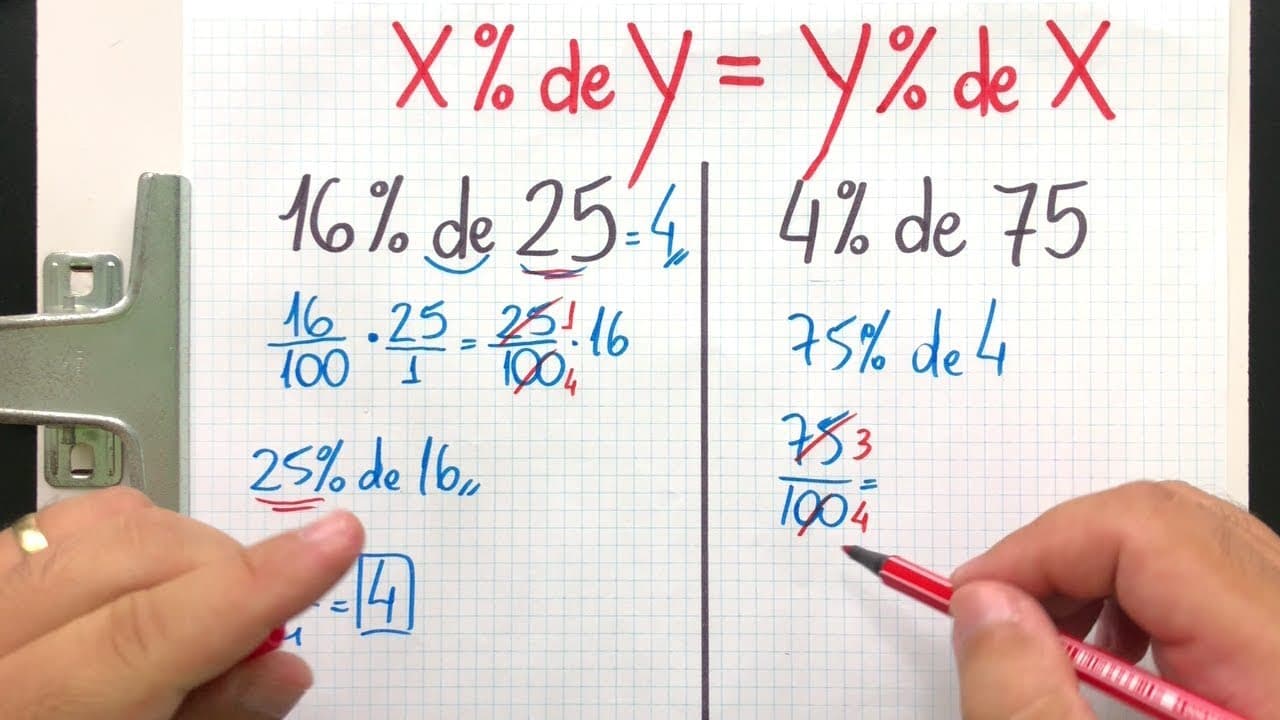 X% de Y = Y% de X
16% de 25 = 4
16/100 · 25/1 = 25/100 1/4 · 16
25% de 16
= 4
4% de 75
75% de 4
75/100 3/4 =